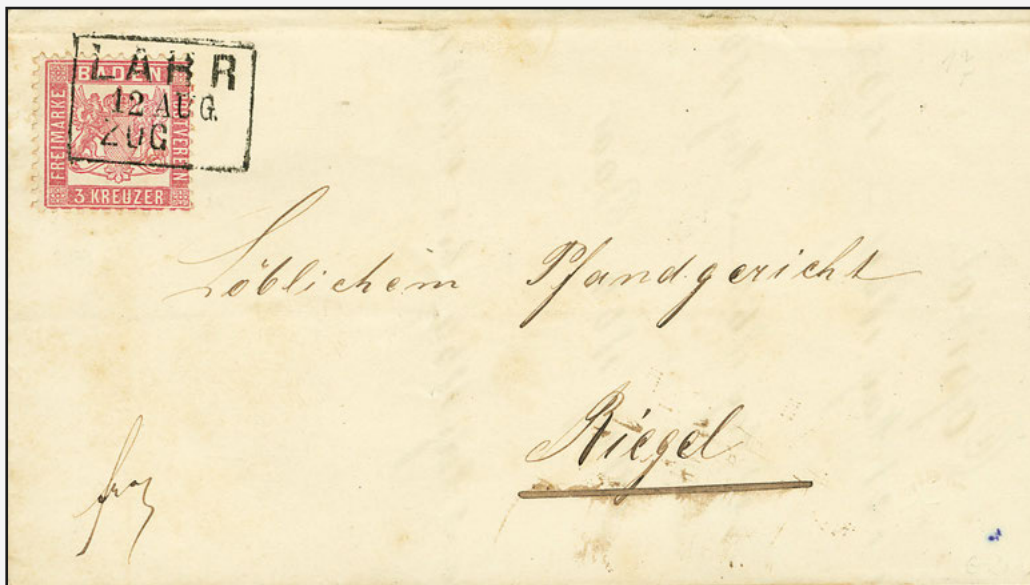 LAHR
12 AUG.
ZUG
BADEN
FREIMARKE
POSTVEREIN
3 KREUZER
Löblichem Pfandgericht
Riegel